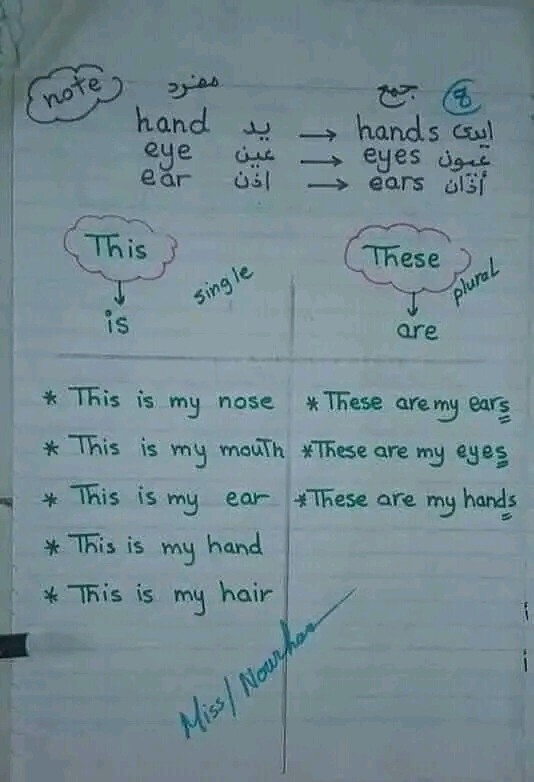 note
مفرد جمع 8
hand يد → hands ايدى
eye عين → eyes عيون
ear اذن → ears أذان
This These
single plural
is are
* This is my nose * These are my ears
* This is my mouth * These are my eyes
* This is my ear * These are my hands
* This is my hand
* This is my hair
Miss/ Nourhan